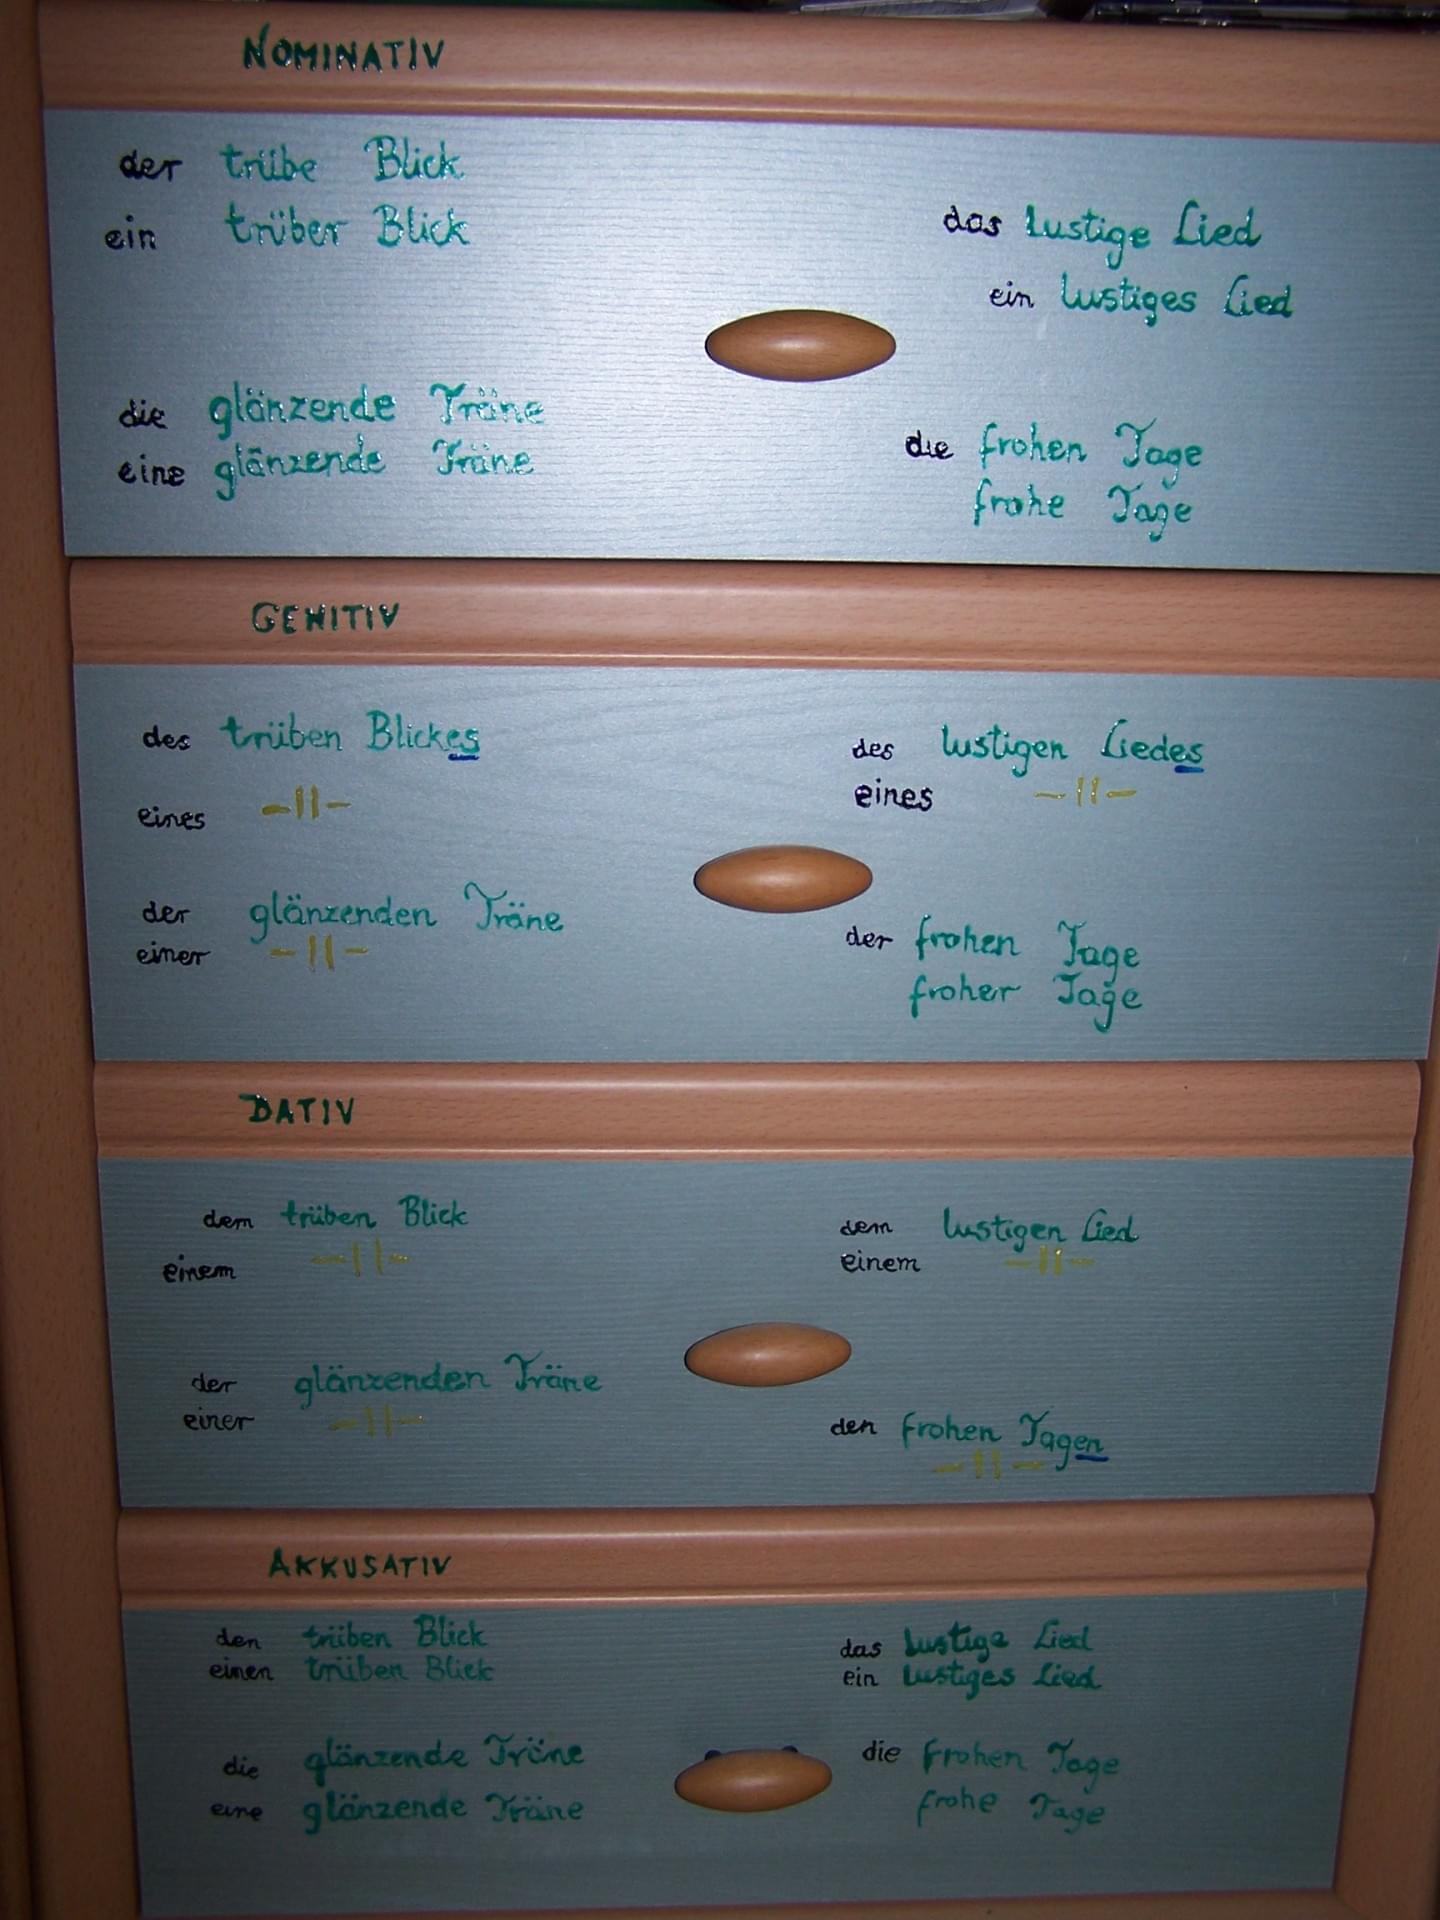 NOMINATIV
der trübe Blick
ein trüber Blick
das lustige Lied
ein lustiges Lied
die glänzende Träne
eine glänzende Träne
die frohen Tage
frohe Tage
GENITIV
des trüben Blickes
eines -||-
des lustigen Liedes
eines -||-
der glänzenden Träne
einer -||-
der frohen Tage
froher Tage
DATIV
dem trüben Blick
einem -||-
dem lustigen Lied
einem -||-
der glänzenden Träne
einer -||-
den frohen Tagen
-||-
AKKUSATIV
den trüben Blick
einen trüben Blick
das lustige Lied
ein lustiges Lied
die glänzende Träne
eine glänzende Träne
die frohen Tage
frohe Tage